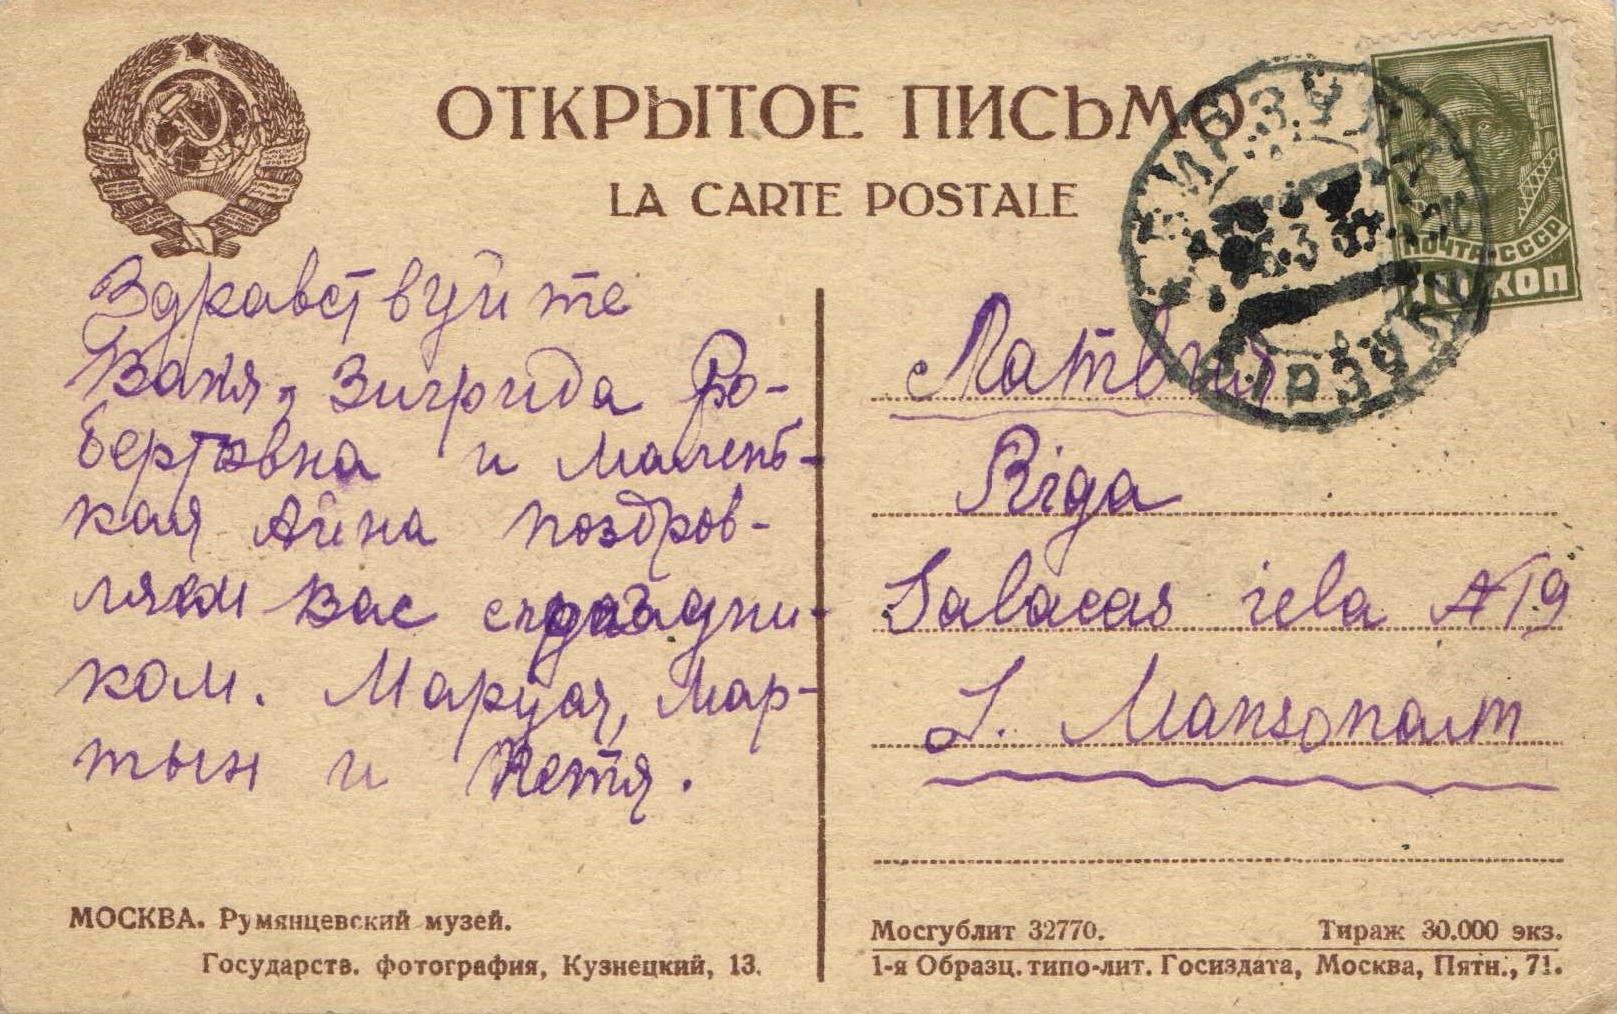 ОТКРЫТОЕ ПИСЬМО
LA CARTE POSTALE
ПОЧТА СССР
10 КОП
Здравствуйте
Ваня, Зигрида Ро-
бертовна и малень-
кая Айна поздров-
ляем Вас с праздни-
ком. Маруся, Мар-
тын и Петя.
Латвия
Riga
Salacas iela № 19
J. Mansonam
МОСКВА. Румянцевский музей.
Государств. фотография, Кузнецкий, 13.
Мосгублит 32770. Тираж 30.000 экз.
1-я Образц. типо-лит. Госиздата, Москва, Пятн., 71.